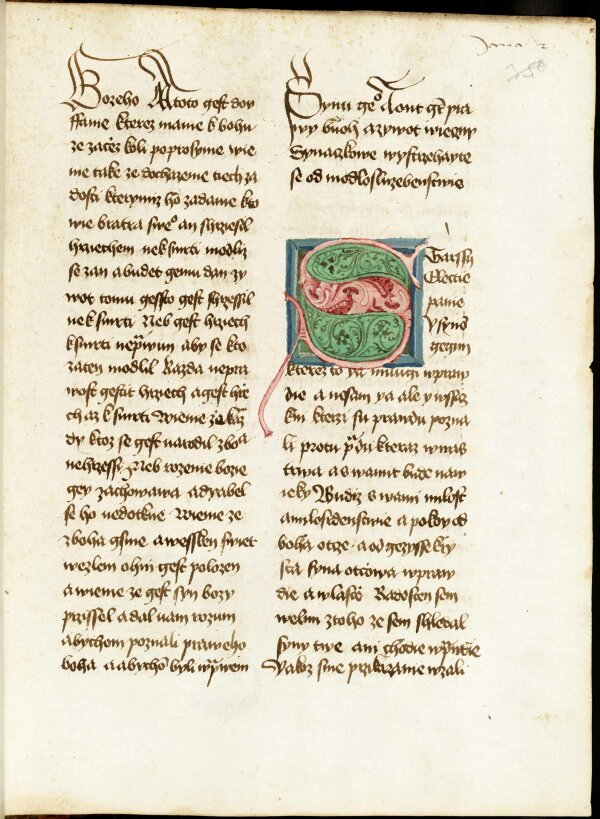 Jana 2
358
Bozeho Atoto gest dov
ffame kterez mame k bohu
ze zacez koli poprosyme wie
me take ze dochazeme tiech za
dosti kterymz ho zadame kto
wie bratra sweo an shrziessil
hrziechem nek smrti modliz
se zan a budet gemu dan zy
wot tomu gessto gest shrzessil
nek smrti Neb gest hrziech
k smrti neprwim aby se kto
zaten modlil Kazda nepra
wost gestit hrziech a gest hrie
ch az k smrti Wieme ze kaz
dy ktoz se gest narodil zboa
nehrzessi Neb rozenie bozie
gey zachowawa a dyabel
se ho nedotkne Wieme ze
zboha gsme a wessken swiet
wezlem ohni gest polozen
a wieme ze gest syn bozy
przissel a dal nam rozum
abychom poznali praweho
boha a abycho byli wprwem
Synu geo Tont gt pra
wy buoh a zywot wieczny
Synaczkowe wystrzehayte
se od modlosluzebenstwie
Starssy
Electie
panie
y synom
gegim
kterez to ya milugi wpraw
die a nesam ya ale y wssic
kni kterzi su prawdu pozna
li protu prdu kteraz wnas
trwa a s wami bude naw
ieky Budiz s wami milost
a milosrdenstwie a pokoy od
boha otcze a od gezisse kry
sta syna otcowa wpraw
die a wlasce Radosten sem
welmi ztoho ze sem shledal
syny twe ani chodie wprwdie
Yakoz sme przikazanie wzali